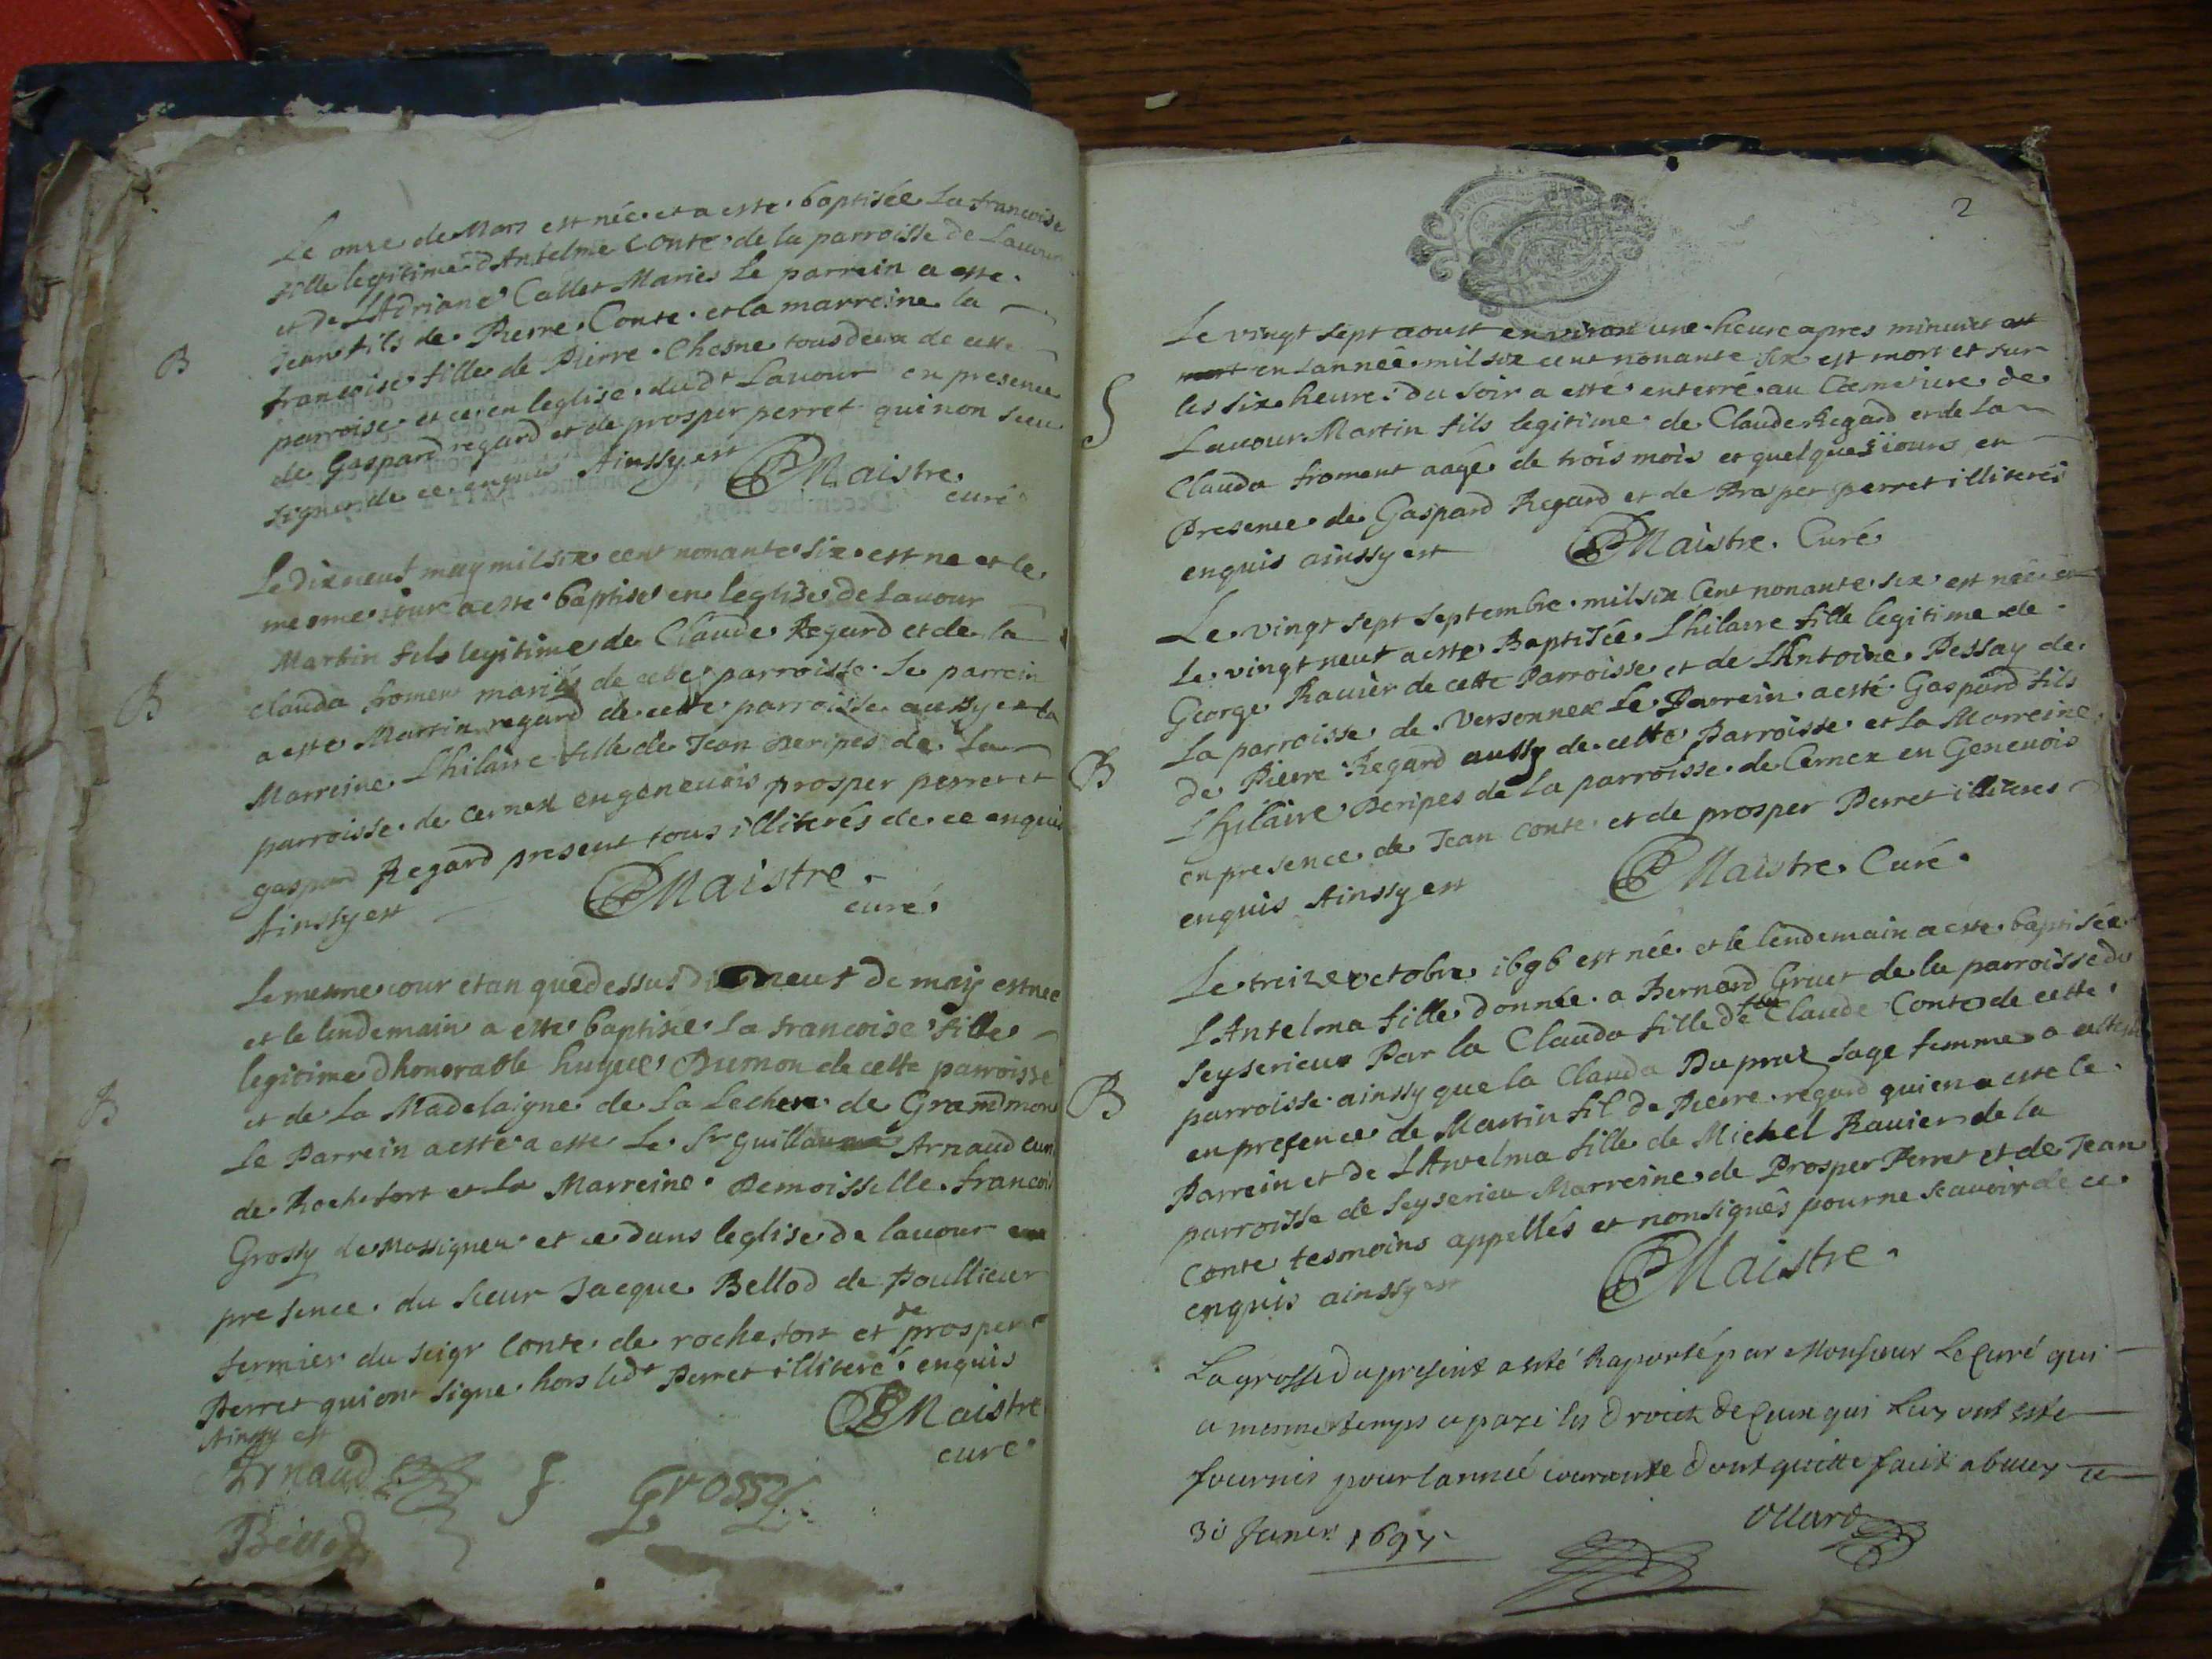 Le onze de Mars est née et a esté baptisée La francoise
fille legitime d'Antelme Conte de la parroisse de Lavour
et de L'Adriane Callet Mariés Le parrein a esté
Jean fils de Pierre Conte et la marreine la
francoise fille de Pierre Chesne tous deux de cette
parroise et ce en leglise dudt Lavour en presence
de Gaspard regard et de prosper perret qui non sceu
signer de ce enquis Ainssy est
PMaistre
curé
B
Le dixneuf may mil six cent nonante six est ne et le
mesme jour a esté baptisé en leglise de Lavour
Martin fils legitime de Claude Regard et de la
Clauda froment mariés de cette parroisse le parrein
a esté Martin regard de cette parroisse aussy et la
Marreine L'hilaire fille de Jean Deripes de la
parroisse de Cernex en genevois prosper perret et
gaspard Regard present tous illiterés de ce enquis
Ainssy est
PMaistre
curé
B
Le mesme jour et an que dessus dixneuf de may est née
et le lendemain a esté baptisée la francoise fille
legitime d'honorable hugue Dumon de cette parroisse
et de La Madelaigne de la Lechere de Grandmon
Le Parrein a esté a esté Le Sr guillaume Arnaud curé
de Rochefort et La Marreine Demoisselle francoi
Grossy de Massigneu et ce dans leglise de lavour en
presence du sieur Jacque Bellod de Poullieur
fermier du seigr Conte de rochefort et de prosper
Perret qui ont signe hors ledt Perret illiteré enquis
Ainssy est
PMaistre
curé
B
Arnaud
Grossy
Bellod
2
Le vingt sept aoust environ une heure apres minuict est
mort en Lannée mil six cent nonante six est mort et sur
les six heure du soir a esté enterré au Cemetiere de
Lavour Martin fils legitime de Claude Regard et de La
Clauda froment aagé de trois mois et quelques iours en
Presence de Gaspard Regard et de Prosper perret illiterés
enquis ainssy est
PMaistre Curé
S
Le vingt sept Septembre mil six Cent nonante six est née et
le vingt neuf a esté Baptisée L'hilaire fille legitime de
George Ravier de cette Parroisse et de L'Antoine Pessay de
La parroisse de Versonnex Le Parrein a esté Gaspard fils
de Pierre Regard aussy de cette Parroisse et la Marreine
L'hilaire Deripes de la parroisse de Cernex en Genevois
en presence de Jean Conte et de prosper Perret illiteres
enquis Ainssy est
PMaistre Curé
B
Le treize octobre 1696 est née et le lendemain a esté baptisée
L'Antelma fille donnée a Bernard Gruet de la parroisse de
Seyserieux Par la Clauda fille de feu Claude Conte de cette
parroisse ainssy que la Clauda Dupraz sage femme a attesté
en presence de Martin fil de Pierre regard qui en a esté le
Parrein et de L'Antelma fille de Michel Ravier de la
parroisse de Seyserieu Marreine de Prosper Perret et de Jean
Conte tesmoins appellés et non signés pour ne scavoir de ce
enquis ainssy est
PMaistre
B
La grosse du present a esté Raporté par Monsieur Le Curé qui
a mesme temps a payé les droict de ceux qui luy ont esté
fournis pour lannée courante dont quitte faict a belley ce
30 Janer 1697